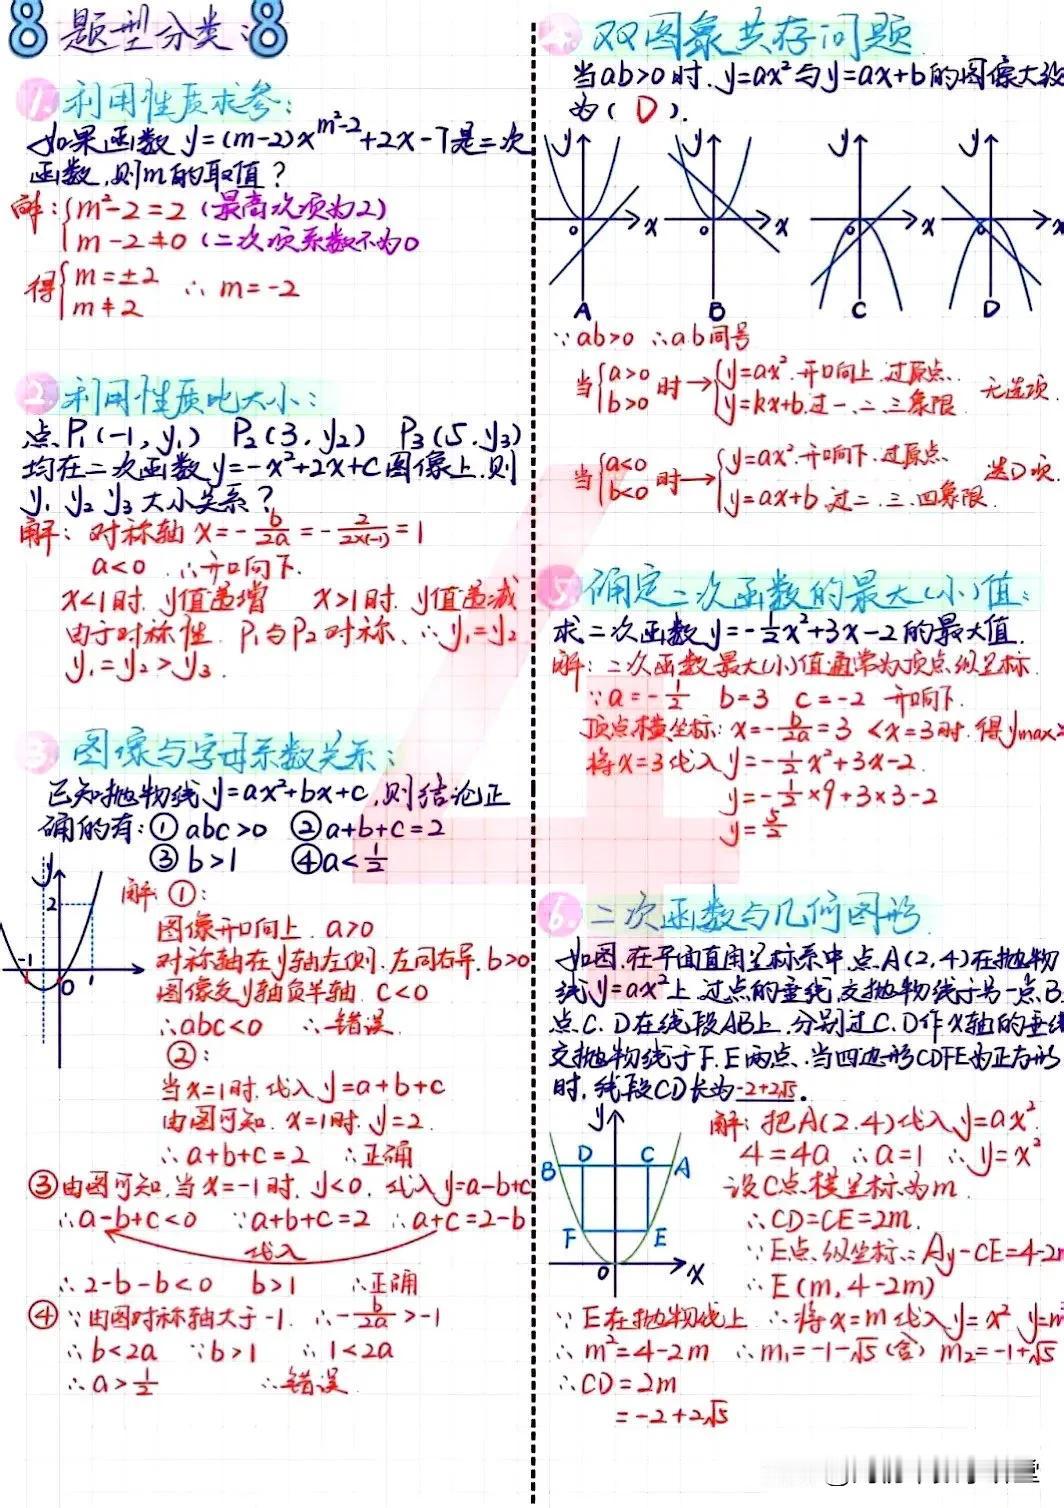 8 题型分类: 8
1. 利用性质求参:
如果函数 y=(m-2)x^{m²-2}+2x-7是二次
函数,则m的取值?
解:{m²-2=2 (最高次项为2)
m-2≠0 (二次项系数不为0
得{m=±2
m≠2 ∴ m=-2
2. 利用性质比大小:
点P₁(-1,y₁) P₂(3,y₂) P₃(5,y₃)
均在二次函数y=-x²+2x+c图像上,则
y₁ y₂ y₃大小关系?
解: 对称轴 x=-b/2a=-2/2×(-1)=1
a<0 ∴开口向下.
x<1时. y值递增 x>1时. y值递减
由于对称性. P₁与P₂对称、∴y₁=y₂
y₁=y₂>y₃.
3. 图像与字母系数关系:
已知抛物线y=ax²+bx+c,则结论正
确的有:① abc>0 ②a+b+c=2
③ b>1 ④a<1/2
y
2
-1
0 1
解 ①:
图像开口向上. a>0
对称轴在y轴左侧.左同右异.b>0
图像交y轴负半轴. c<0
∴abc<0 ∴错误.
②:
当x=1时.代入 y=a+b+c
由图可知. x=1时. y=2.
∴a+b+c=2 ∴正确
③由图可知.当x=-1时. y<0. 代入y=a-b+c
∴a-b+c<0 ∵a+b+c=2 ∴a+c=2-b
代入
∴2-b-b<0 b>1 ∴正确
④∵由图对称轴大于-1. ∴-b/2a>-1
∴b<2a ∵b>1 ∴1<2a
∴a>1/2 ∴错误
双图象共存问题
当ab>0时. y=ax²与y=ax+b的图像大致
为( D ).
y y y y
0 x 0 x x x
A B C D
∵ab>0 ∴a.b同号
当{a>0
b>0 时→{y=ax².开口向上.过原点.
y=kx+b.过一、二、三象限. 无选项.
当{a<0
b<0 时→{y=ax².开口向下.过原点. 选D项.
y=ax+b.过二、三、四象限.
5. 确定二次函数的最大(小)值:
求二次函数y=-1/2x²+3x-2的最大值.
解: 二次函数最大(小)值通常为顶点纵坐标.
∵a=-1/2 b=3 c=-2 开口向下.
顶点横坐标: x=-b/2a=3 <x=3时.得ymax>
将x=3代入y=-1/2x²+3x-2.
y=-1/2×9+3×3-2
y=5/2
6. 二次函数与几何图形.
如图.在平面直角坐标系中.点A(2,4)在抛物
线y=ax²上.过点的垂线.交抛物线于另一点B
点C、D在线段AB上.分别过C.D作x轴的垂线
交抛物线于F.E两点、当四边形CDFE为正方形
时,线段CD长为-2+2√5.
y
B D C A
F E
0 x
解: 把A(2.4)代入y=ax².
4=4a ∴a=1 ∴y=x²
设C点横坐标为m.
∴CD=CE=2m.
∵E点纵坐标∴Ay-CE=4-2m
∴E(m,4-2m)
∵E在抛物线上 ∴将x=m代入y=x² y=m²
∴m²=4-2m ∴m₁=-1-√5(舍) m₂=-1+√5
∴CD=2m
=-2+2√5